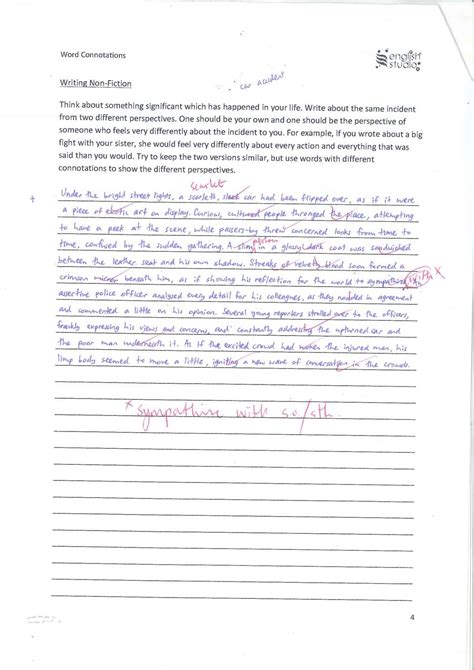 Word Connotations
english studio
Writing Non-Fiction
car accident
Think about something significant which has happened in your life. Write about the same incident
from two different perspectives. One should be your own and one should be the perspective of
someone who feels very differently about the incident to you. For example, if you wrote about a big
fight with your sister, she would feel very differently about every action and everything that was
said than you would. Try to keep the two versions similar, but use words with different
connotations to show the different perspectives.
scarlet
Under the bright street lights, a scarlett, sleek car had been flipped over, as if it were
a piece of exotic art on display. Curious, cultured people thronged the place, attempting
to have a peek at the scene, while passers-by threw concerned looks from time to
person
time, confused by the sudden gathering. A slim in a glossy dark coat was sandwiched
between the leather seat and his own shadow. Streaks of velvety blood soon formed a
crimson mirror beneath him, as if showing his reflection for the world to sympathise. An
assertive police officer analysed every detail for his colleagues, as they nodded in agreement
and commented a little on his opinion. Several young reporters strolled over to the officers,
frankly expressing his views and concerns, and constantly addressing the upturned car and
the poor man underneath it. As if the excited crowd had woken the injured man, his
limp body seemed to move a little, igniting a new wave of conversation in the crowds.
* sympathise with so/sth.
4